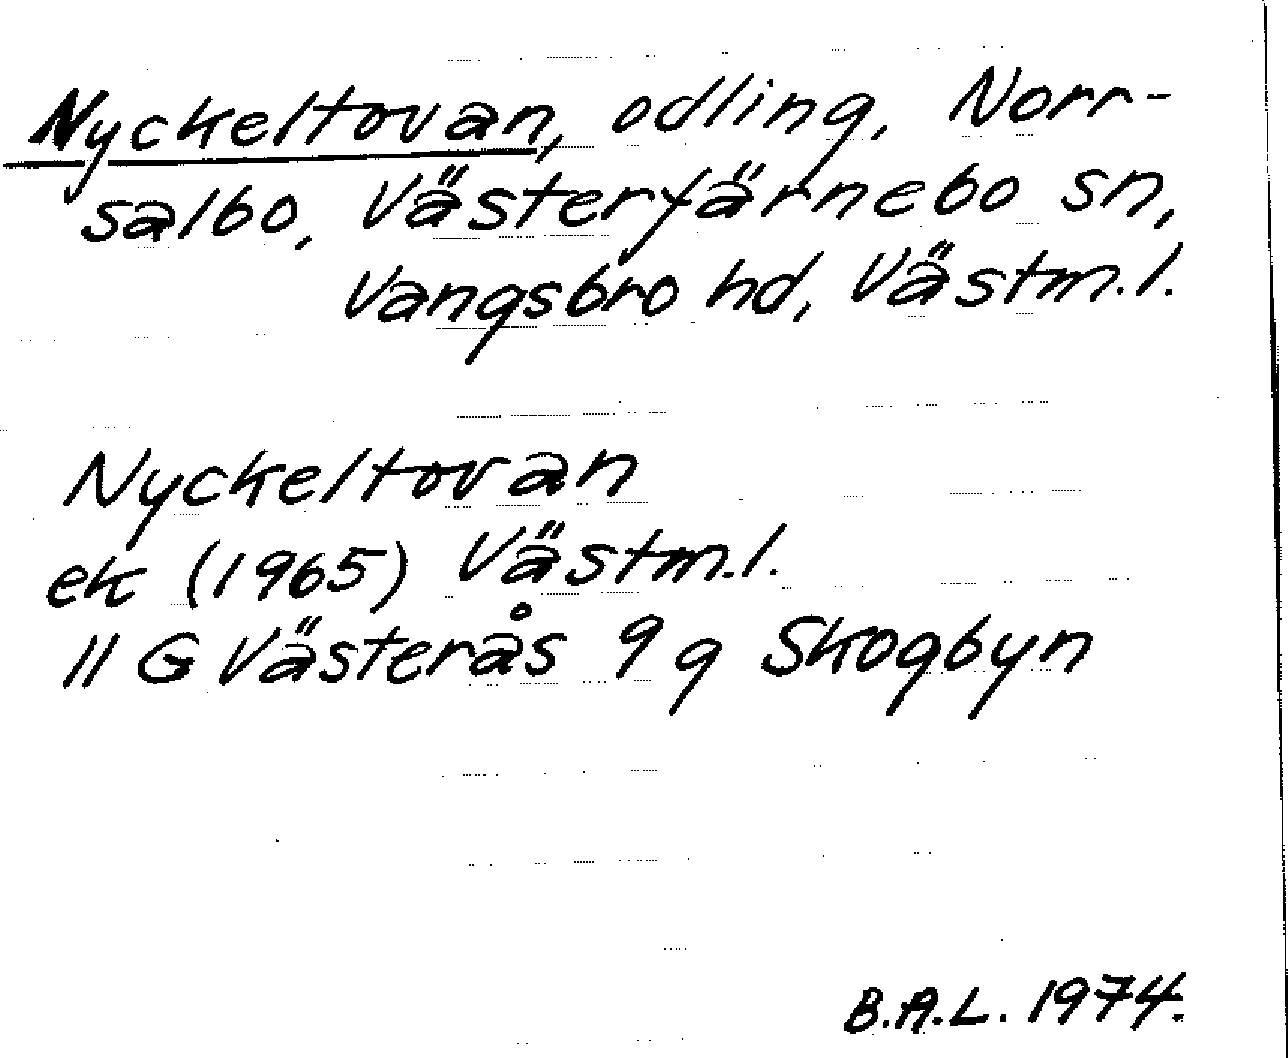 Nyckeltovan, odling, Norr-
salbo, Västerfärnebo sn,
Vangsbro hd, Västm.l.
Nyckeltovan
ek (1965) Västm.l.
11 G Västerås 9 g Skogbyn
B.A.L. 1974.